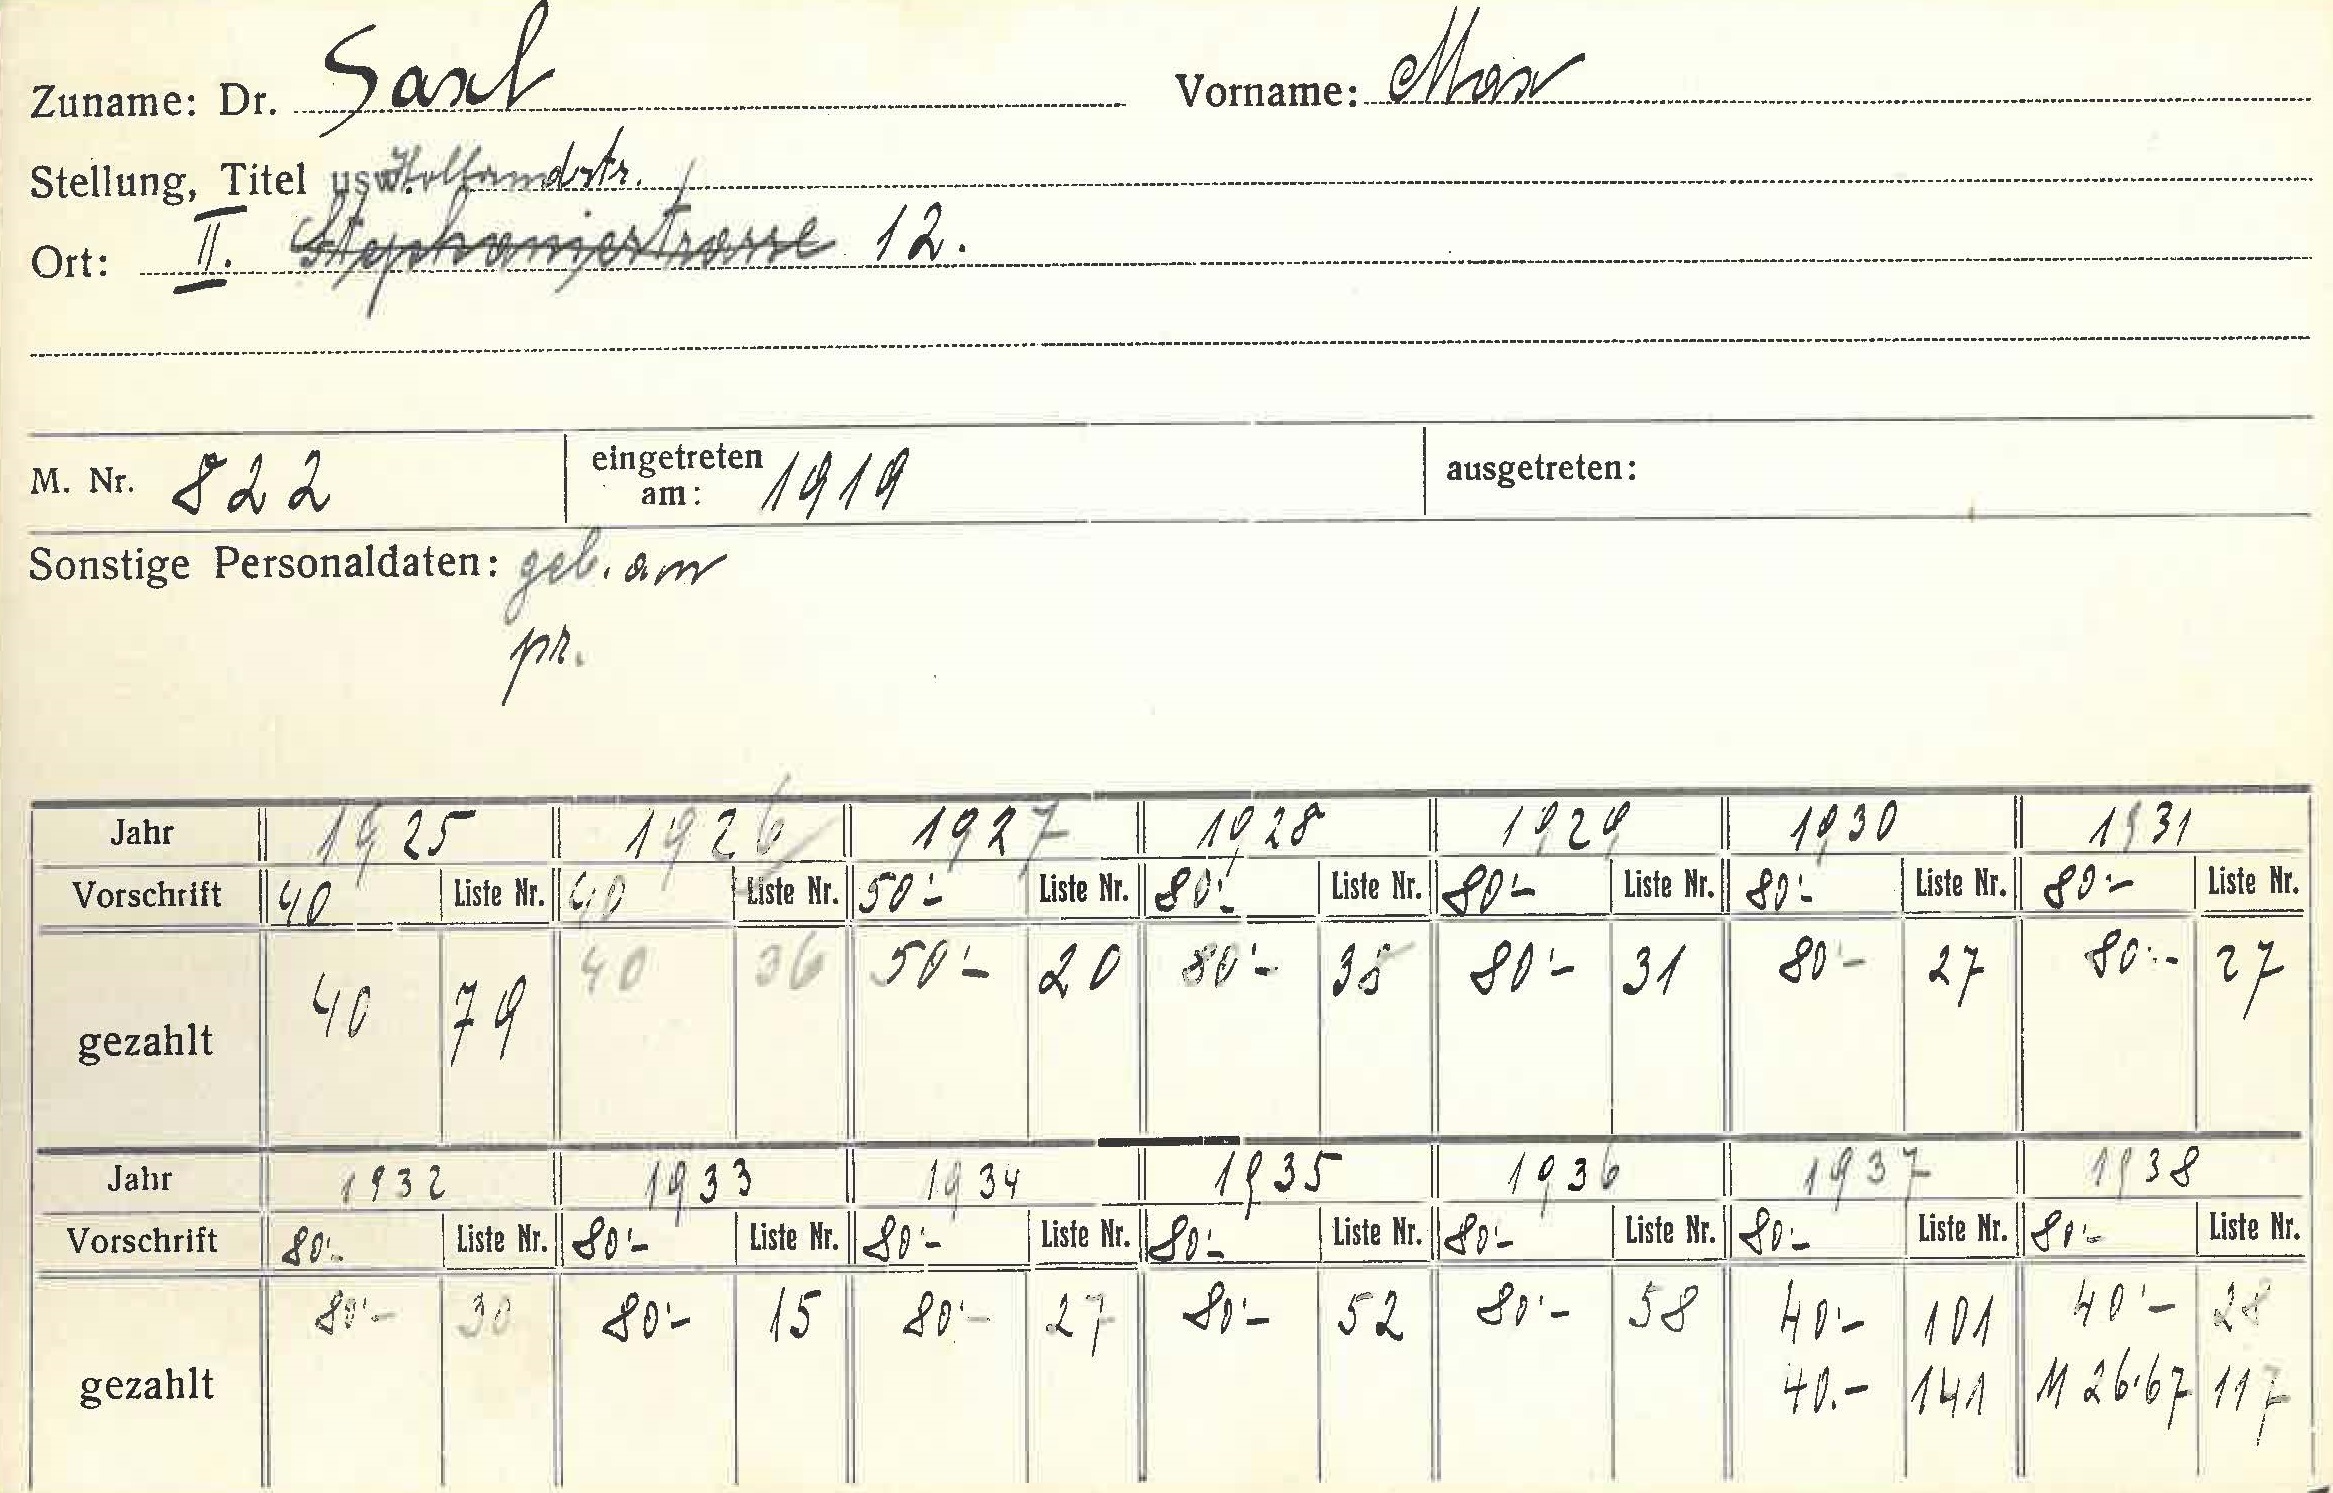 Zuname: Dr. Saxl Vorname: Max
Stellung, Titel usw. Hollandstr.
Ort: II. Stephaniestrasse 12.
M. Nr. 822 eingetreten am: 1919 ausgetreten:
Sonstige Personaldaten: geb. am
pr.
Jahr 1925 1926 1927 1928 1929 1930 1931
Vorschrift 40 Liste Nr. 40 Liste Nr. 50·- Liste Nr. 80·- Liste Nr. 80·- Liste Nr. 80·- Liste Nr. 80·- Liste Nr.
gezahlt 40 79 40 36 50·- 20 80·- 80·- 31 80·- 27 80·- 27
Jahr 1932 1933 1934 1935 1936 1937 1938
Vorschrift 80·- Liste Nr. 80·- Liste Nr. 80·- Liste Nr. 80·- Liste Nr. 80·- Liste Nr. 80·- Liste Nr. 80·- Liste Nr.
80·- 30 80·- 15 80·- 27 80·- 52 80·- 58 40·- 101 40·- 28
gezahlt 40.- 141 M 26·67 117